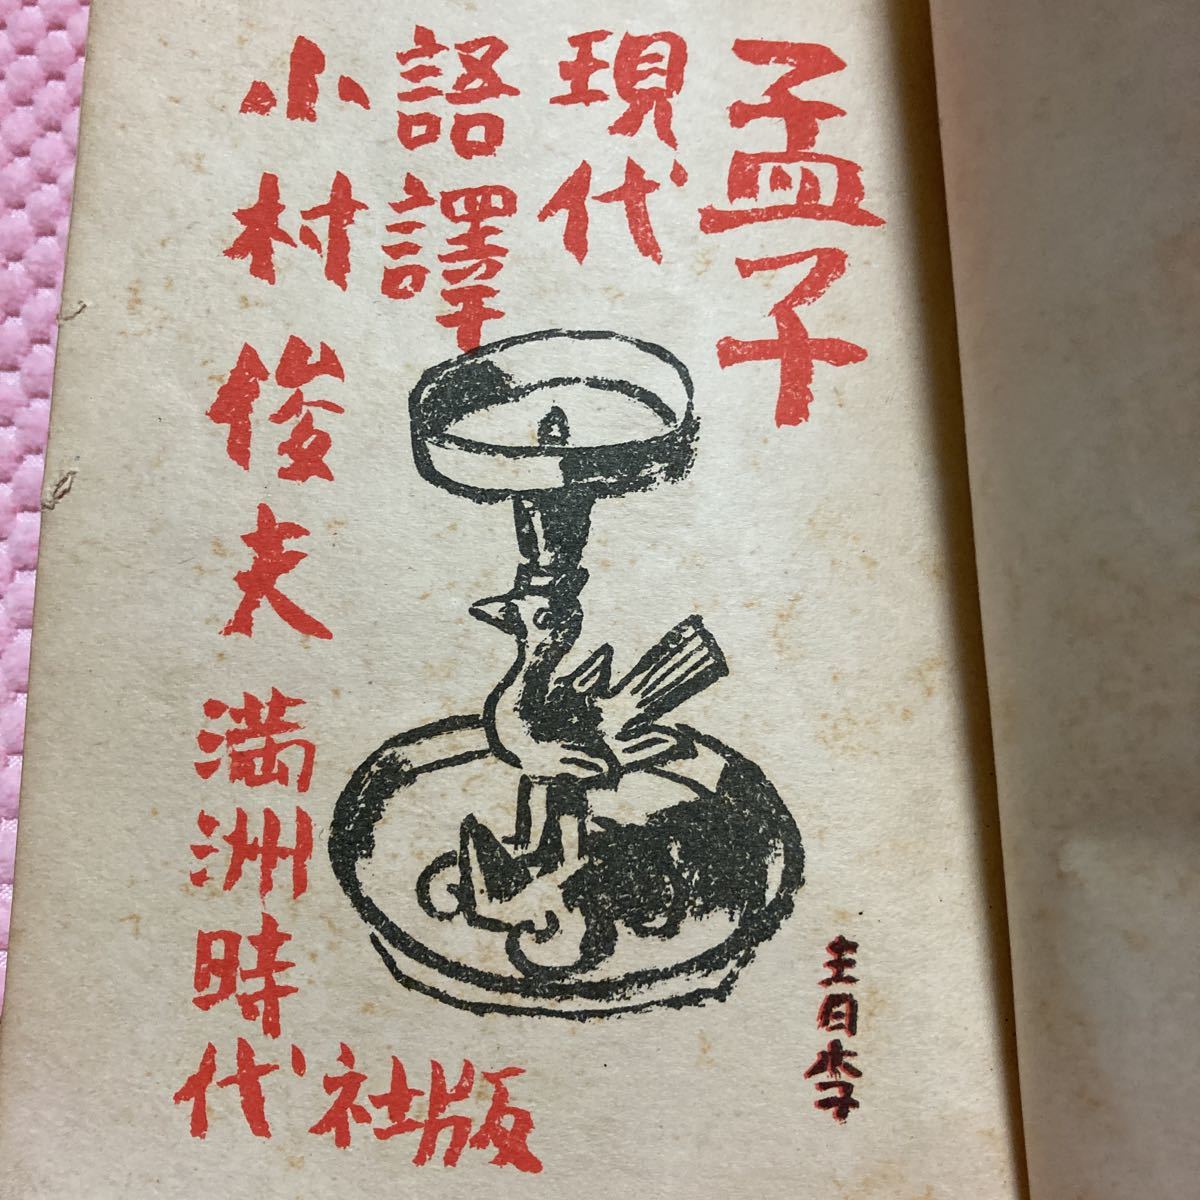 孟子
現代
語譯
小村俊夫
満洲時代社版
青李